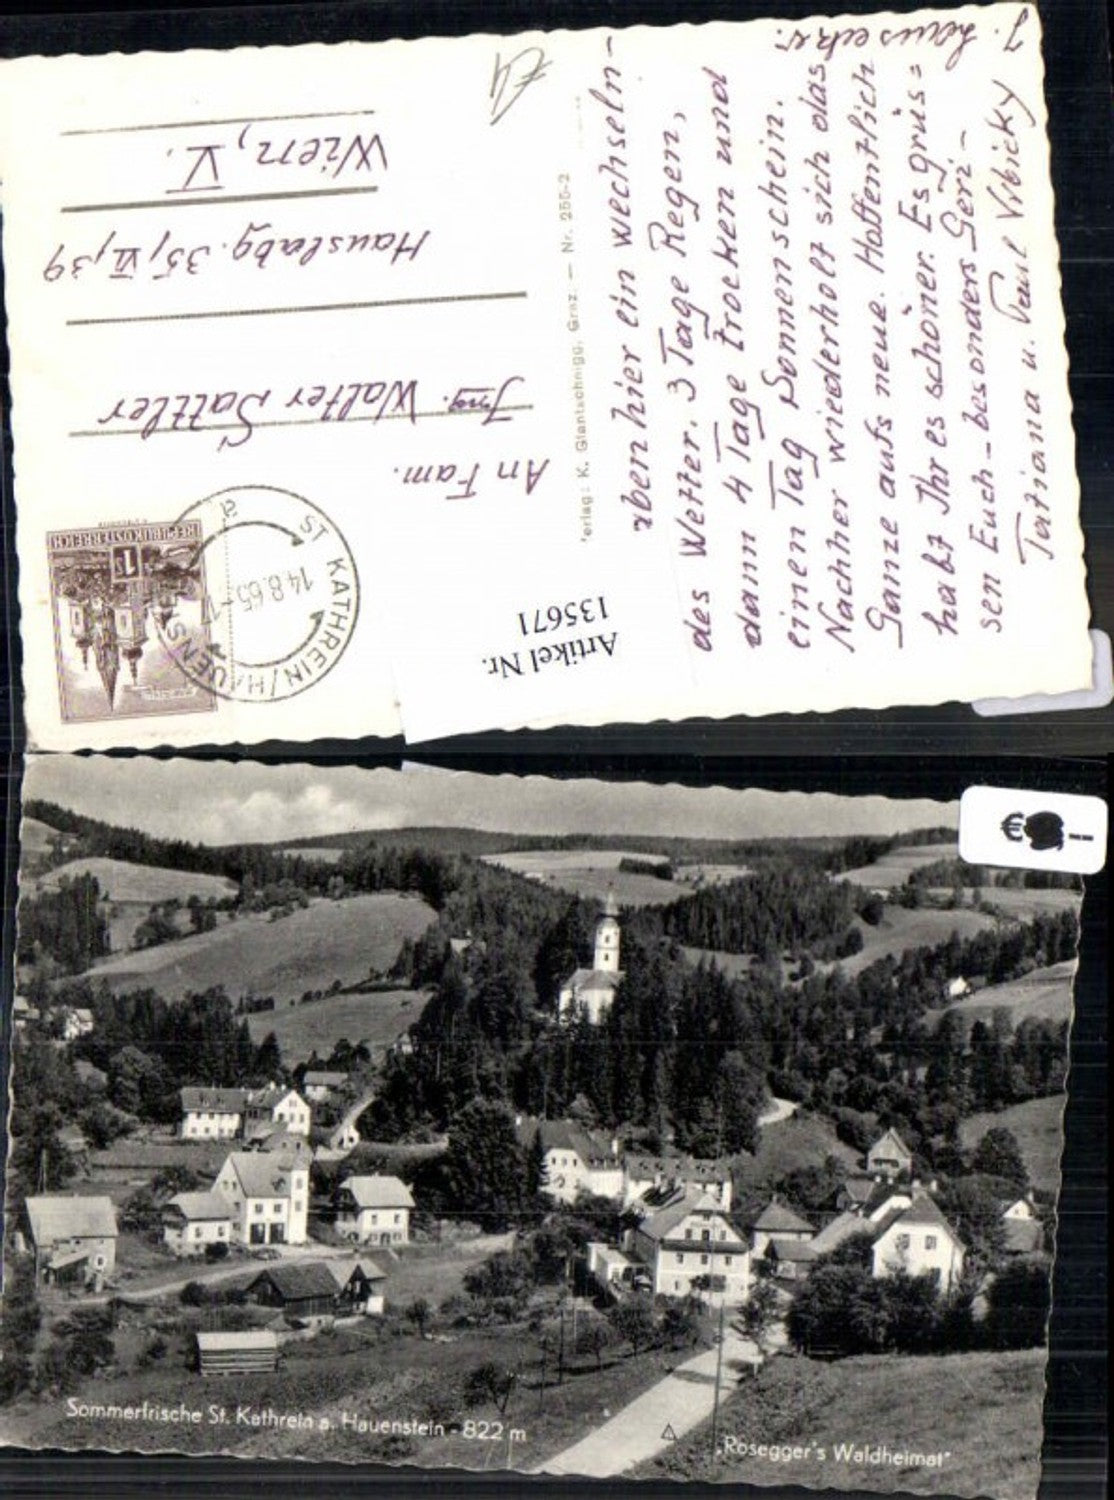 Wien, V.
Hauslabg. 35, VI, 39
Ing. Walter Sattler
An Fam.
REPUBLIK ÖSTERREICH
1s
ST KATHREIN/HAUENS
14.8.65
a
Artikel Nr.
135671
erlag: K. Glantschnigg, Graz. — Nr. 255-2
ben hier ein wechseln-
des Wetter. 3 Tage Regen,
dann 4 Tage trocken und
einen Tag Sonnenschein.
Nachher wiederholt sich das
Ganze aufs neue. Hoffentlich
habt Ihr es schöner. Es grüs=
sen Euch - besonders Geri-
Tatiana u. Paul
€
Sommerfrische St. Kathrein a. Hauenstein - 822 m
„Rosegger's Waldheimat"